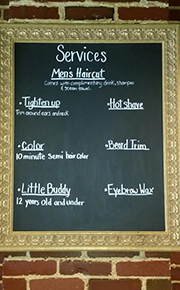 Services
Men's Haircut
Comes with complimentary drink, shampoo
& steam towel
• Tighten up
Trim around ears and neck
• Hot shave
• Color
10 minute Semi hair color
• Beard Trim
• Little Buddy
12 years old and under
• Eyebrow Wax